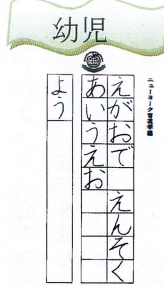 幼児
ニューヨーク育英学園
えがおで えんそく
あいうえお
よう